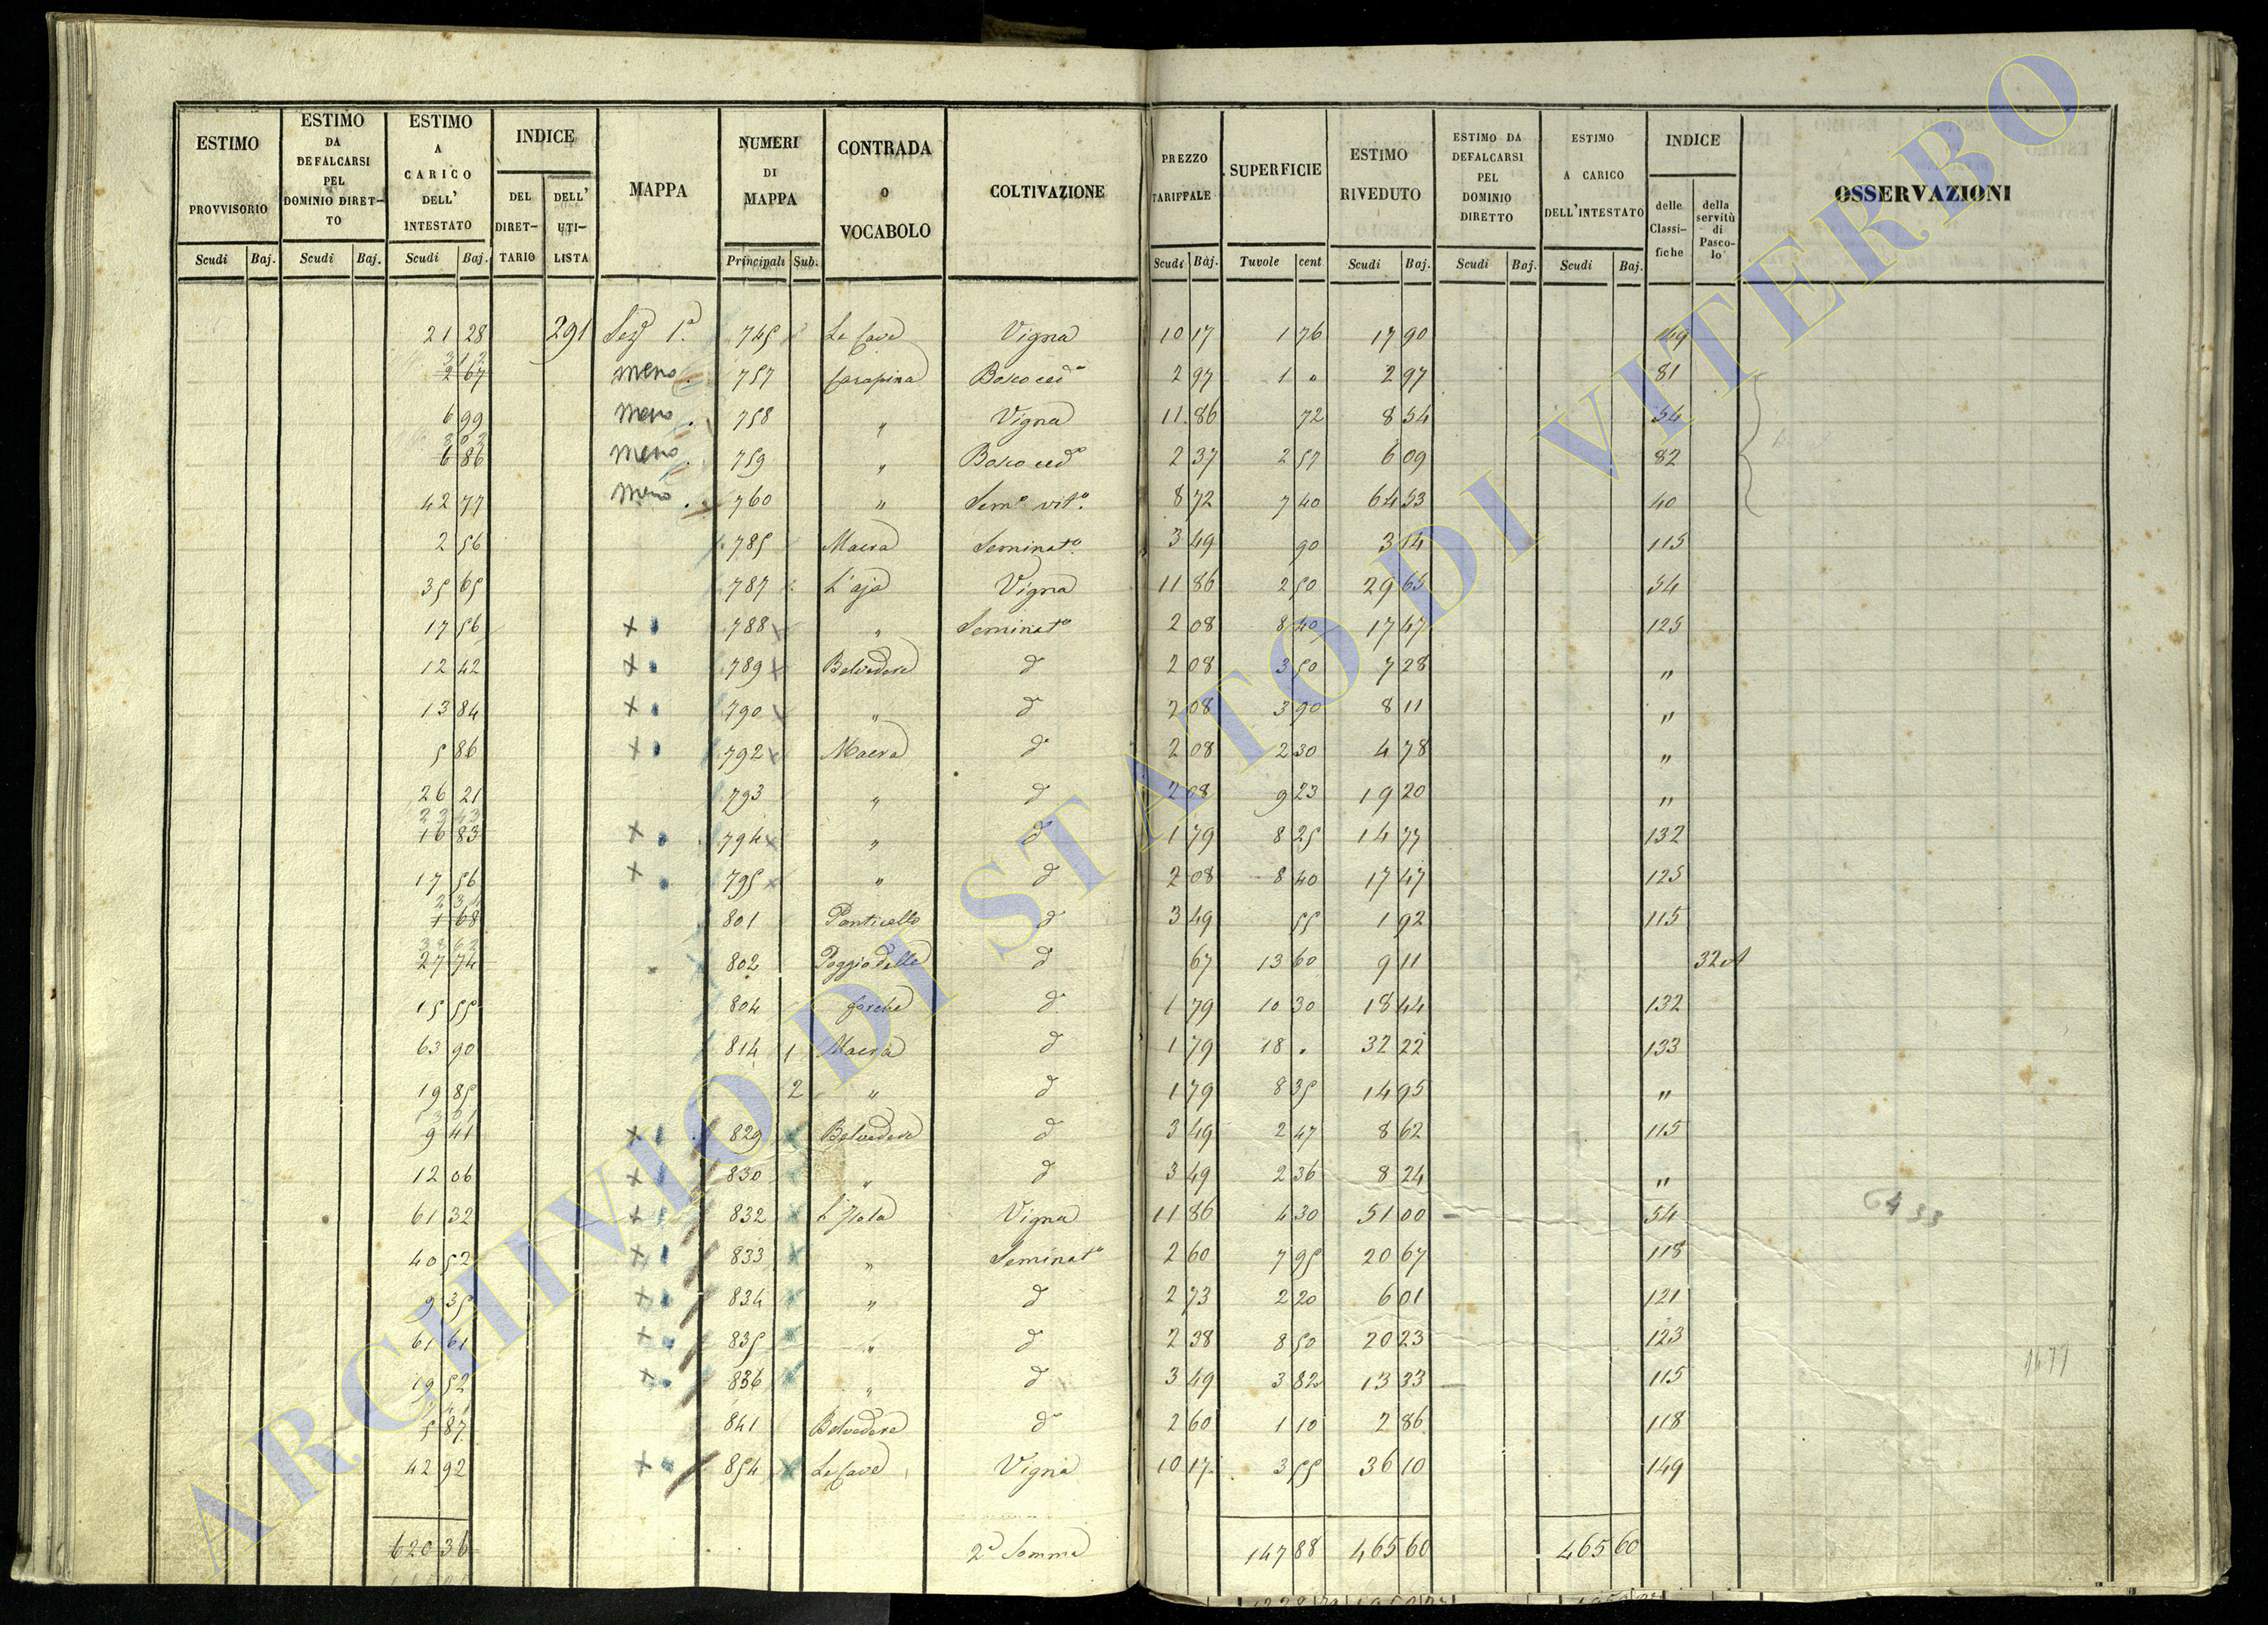 ESTIMO PROVVISORIO | ESTIMO DA DEFALCARSI PEL DOMINIO DIRETTO | ESTIMO A CARICO DELL' INTESTATO | INDICE DEL DIRETTARIO | DELL' UTILISTA | MAPPA | NUMERI DI MAPPA | CONTRADA O VOCABOLO | COLTIVAZIONE | PREZZO TARIFFALE | SUPERFICIE | ESTIMO RIVEDUTO | ESTIMO DA DEFALCARSI PEL DOMINIO DIRETTO | ESTIMO A CARICO DELL'INTESTATO | INDICE delle Classifiche | della servitù di Pascolo | OSSERVAZIONI
Scudi | Baj. | Scudi | Baj. | Scudi | Baj. | Principali | Sub. | Scudi | Baj. | Tavole | cent | Scudi | Baj. | Scudi | Baj. | Scudi | Baj.
21 28 | 291 | Seze 1a. | 745 | Le Cave | Vigna | 10 17 | 1 76 | 17 90 | 149
3 12
2 67 | meno | 757 | Carapina | Bosco ced° | 2 97 | 1 " | 2 97 | 81
6 99 | meno | 758 | " | Vigna | 11 86 | 72 | 8 54 | 54
8 02
6 86 | meno | 759 | " | Bosco ced° | 2 37 | 2 57 | 6 09 | 82
42 77 | meno | 760 | " | Sem° vit° | 8 72 | 7 40 | 64 53 | 40
2 56 | 785 | Macra | Seminat° | 3 49 | 90 | 3 14 | 115
35 65 | 787 | L'aja | Vigna | 11 86 | 2 50 | 29 65 | 54
17 56 | + | 788 | " | Seminat° | 2 08 | 8 40 | 17 47 | 125
12 42 | + | 789 | Belvedere | d° | 2 08 | 3 50 | 7 28 | "
13 84 | + | 790 | " | d° | 2 08 | 3 90 | 8 11 | "
5 86 | + | 792 | Macra | d° | 2 08 | 2 30 | 4 78 | "
26 21 | 793 | " | d° | 2 08 | 9 23 | 19 20 | "
23 43
16 83 | + | 794 | " | d° | 1 79 | 8 25 | 14 77 | 132
17 56 | + | 795 | " | d° | 2 08 | 8 40 | 17 47 | 125
1 68 | 801 | Ponticello | d° | 3 49 | 55 | 1 92 | 115
38 62
27 74 | 802 | Poggio delle | d° | 67 | 13 60 | 9 11 | 32 A
15 55 | 804 | forche | d° | 1 79 | 10 30 | 18 44 | 132
63 90 | 814 | 1 | Macra | d° | 1 79 | 18 . | 32 22 | 133
19 85 | 2 | " | d° | 1 79 | 8 35 | 14 95 | "
9 41 | + | 829 | Belvedere | d° | 3 49 | 2 47 | 8 62 | 115
12 06 | + | 830 | " | d° | 3 49 | 2 36 | 8 24 | "
61 32 | + | 832 | L'Isola | Vigna | 11 86 | 4 30 | 51 00 | 54 | 64 33
40 52 | + | 833 | " | Seminat° | 2 60 | 7 95 | 20 67 | 118
9 35 | + | 834 | " | d° | 2 73 | 2 20 | 6 01 | 121
61 61 | + | 835 | " | d° | 2 38 | 8 50 | 20 23 | 123
19 52 | + | 836 | " | d° | 3 49 | 3 82 | 13 33 | 115
5 87 | 841 | Belvedere | d° | 2 60 | 1 10 | 2 86 | 118
42 92 | + | 854 | Le Cave | Vigna | 10 17 | 3 55 | 36 10 | 149
620 36 | 2a Somma | 147 88 | 465 60 | 465 60
ARCHIVIO DI STATO DI VITERBO